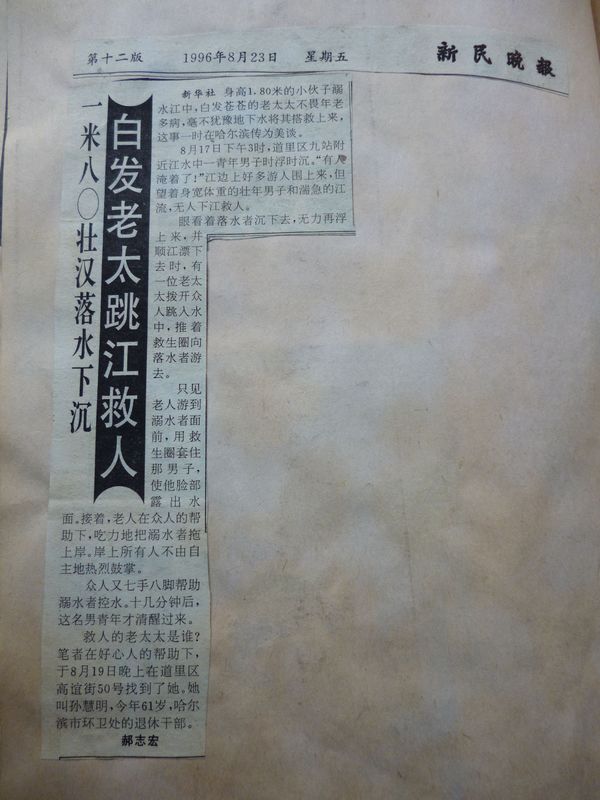 第十二版 1996年8月23日 星期五 新民晚报
一米八〇壮汉落水下沉
白发老太跳江救人
新华社 身高1.80米的小伙子溺
水江中,白发苍苍的老太太不畏年老
多病,毫不犹豫地下水将其搭救上来,
这事一时在哈尔滨传为美谈。
8月17日下午3时,道里区九站附
近江水中一青年男子时浮时沉。“有人
淹着了!”江边上好多游人围上来,但
望着身宽体重的壮年男子和湍急的江
流,无人下江救人。
眼看着落水者沉下去,无力再浮
上来,并
顺江漂下
去时,有
一位老太
太拨开众
人跳入水
中,推着
救生圈向
落水者游
去。
只见
老人游到
溺水者面
前,用救
生圈套住
那男子,
使他脸部
露出水
面。接着,老人在众人的帮
助下,吃力地把溺水者拖
上岸。岸上所有人不由自
主地热烈鼓掌。
众人又七手八脚帮助
溺水者控水。十几分钟后,
这名男青年才清醒过来。
救人的老太太是谁?
笔者在好心人的帮助下,
于8月19日晚上在道里区
高谊街50号找到了她。她
叫孙慧明,今年61岁,哈尔
滨市环卫处的退休干部。
郝志宏